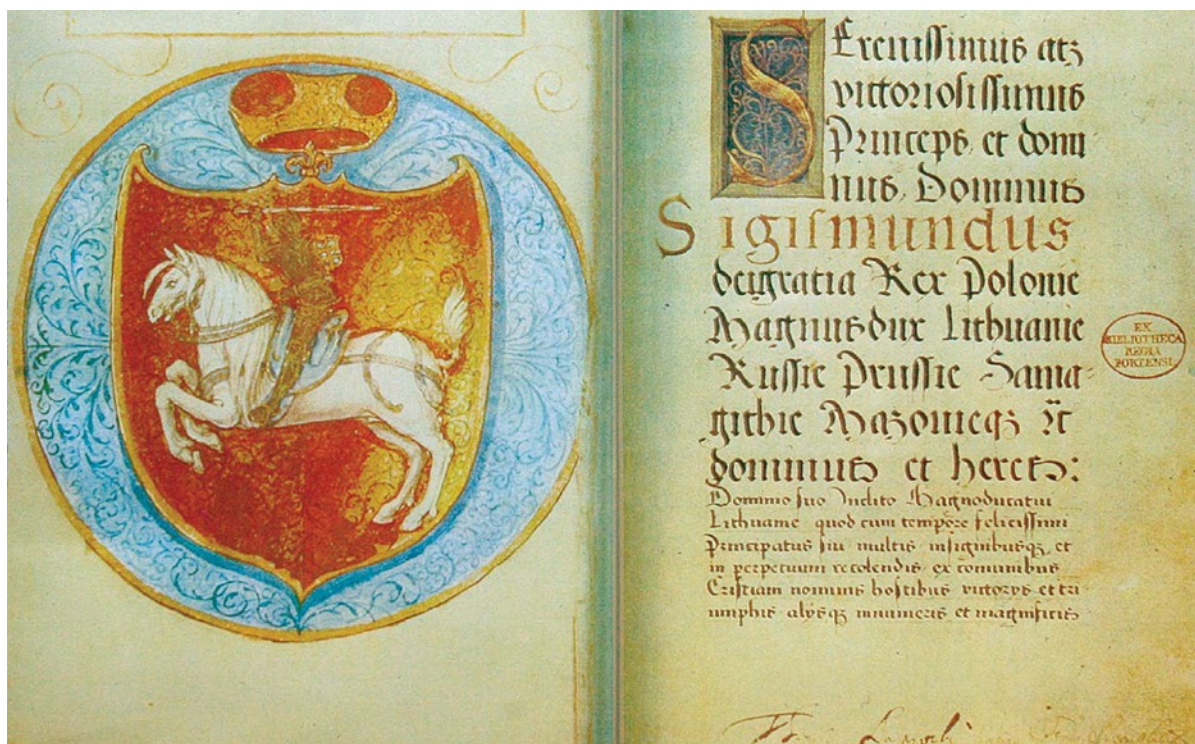 Serenissimus atqz
victoriosissimus
Princeps et domi
nus, Dominus
Sigismundus
deigratia Rex Polonie
Magnus dux Lithuanie
Russie Prussie Sama-
githie Mazonieqz ec
dominus et heres:
Dominio suo Inclito Magnoducatui
Lithuanie quod cum tempore felicissimi
Principatus sui multis insignibusqz et
in perpetuum recolendis ex comunibus
Cristiani nominis hostibus victorys et tri
umphis alysqz innumeris et magnificis
EX
BIBLIOTHECA
REGIA
PORTENSI